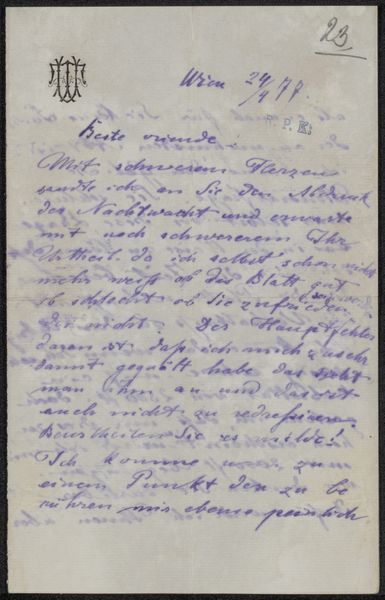 23
Wien 24/4 77.
R. P. K.
Beste vriende!
Mit schwerem Herzen
sandte ich an Sie den Abdruck
der Nachtwacht und erwarte
mit noch schwererem Ihr
Urtheil. da ich selbst schon nicht
mehr weiß ob das Blatt gut
ob schlecht ob Sie zufrieden sein
oder nicht. Der Hauptfehler
daran ist daß ich mich zu sehr
damit gequält habe das sieht
man ihm an und das ist
auch nicht zu redressiren.
Beurtheilen Sie es milde!
Ich komme nun zu
einem Punkt den zu be
rühren mir ebenso peinlich